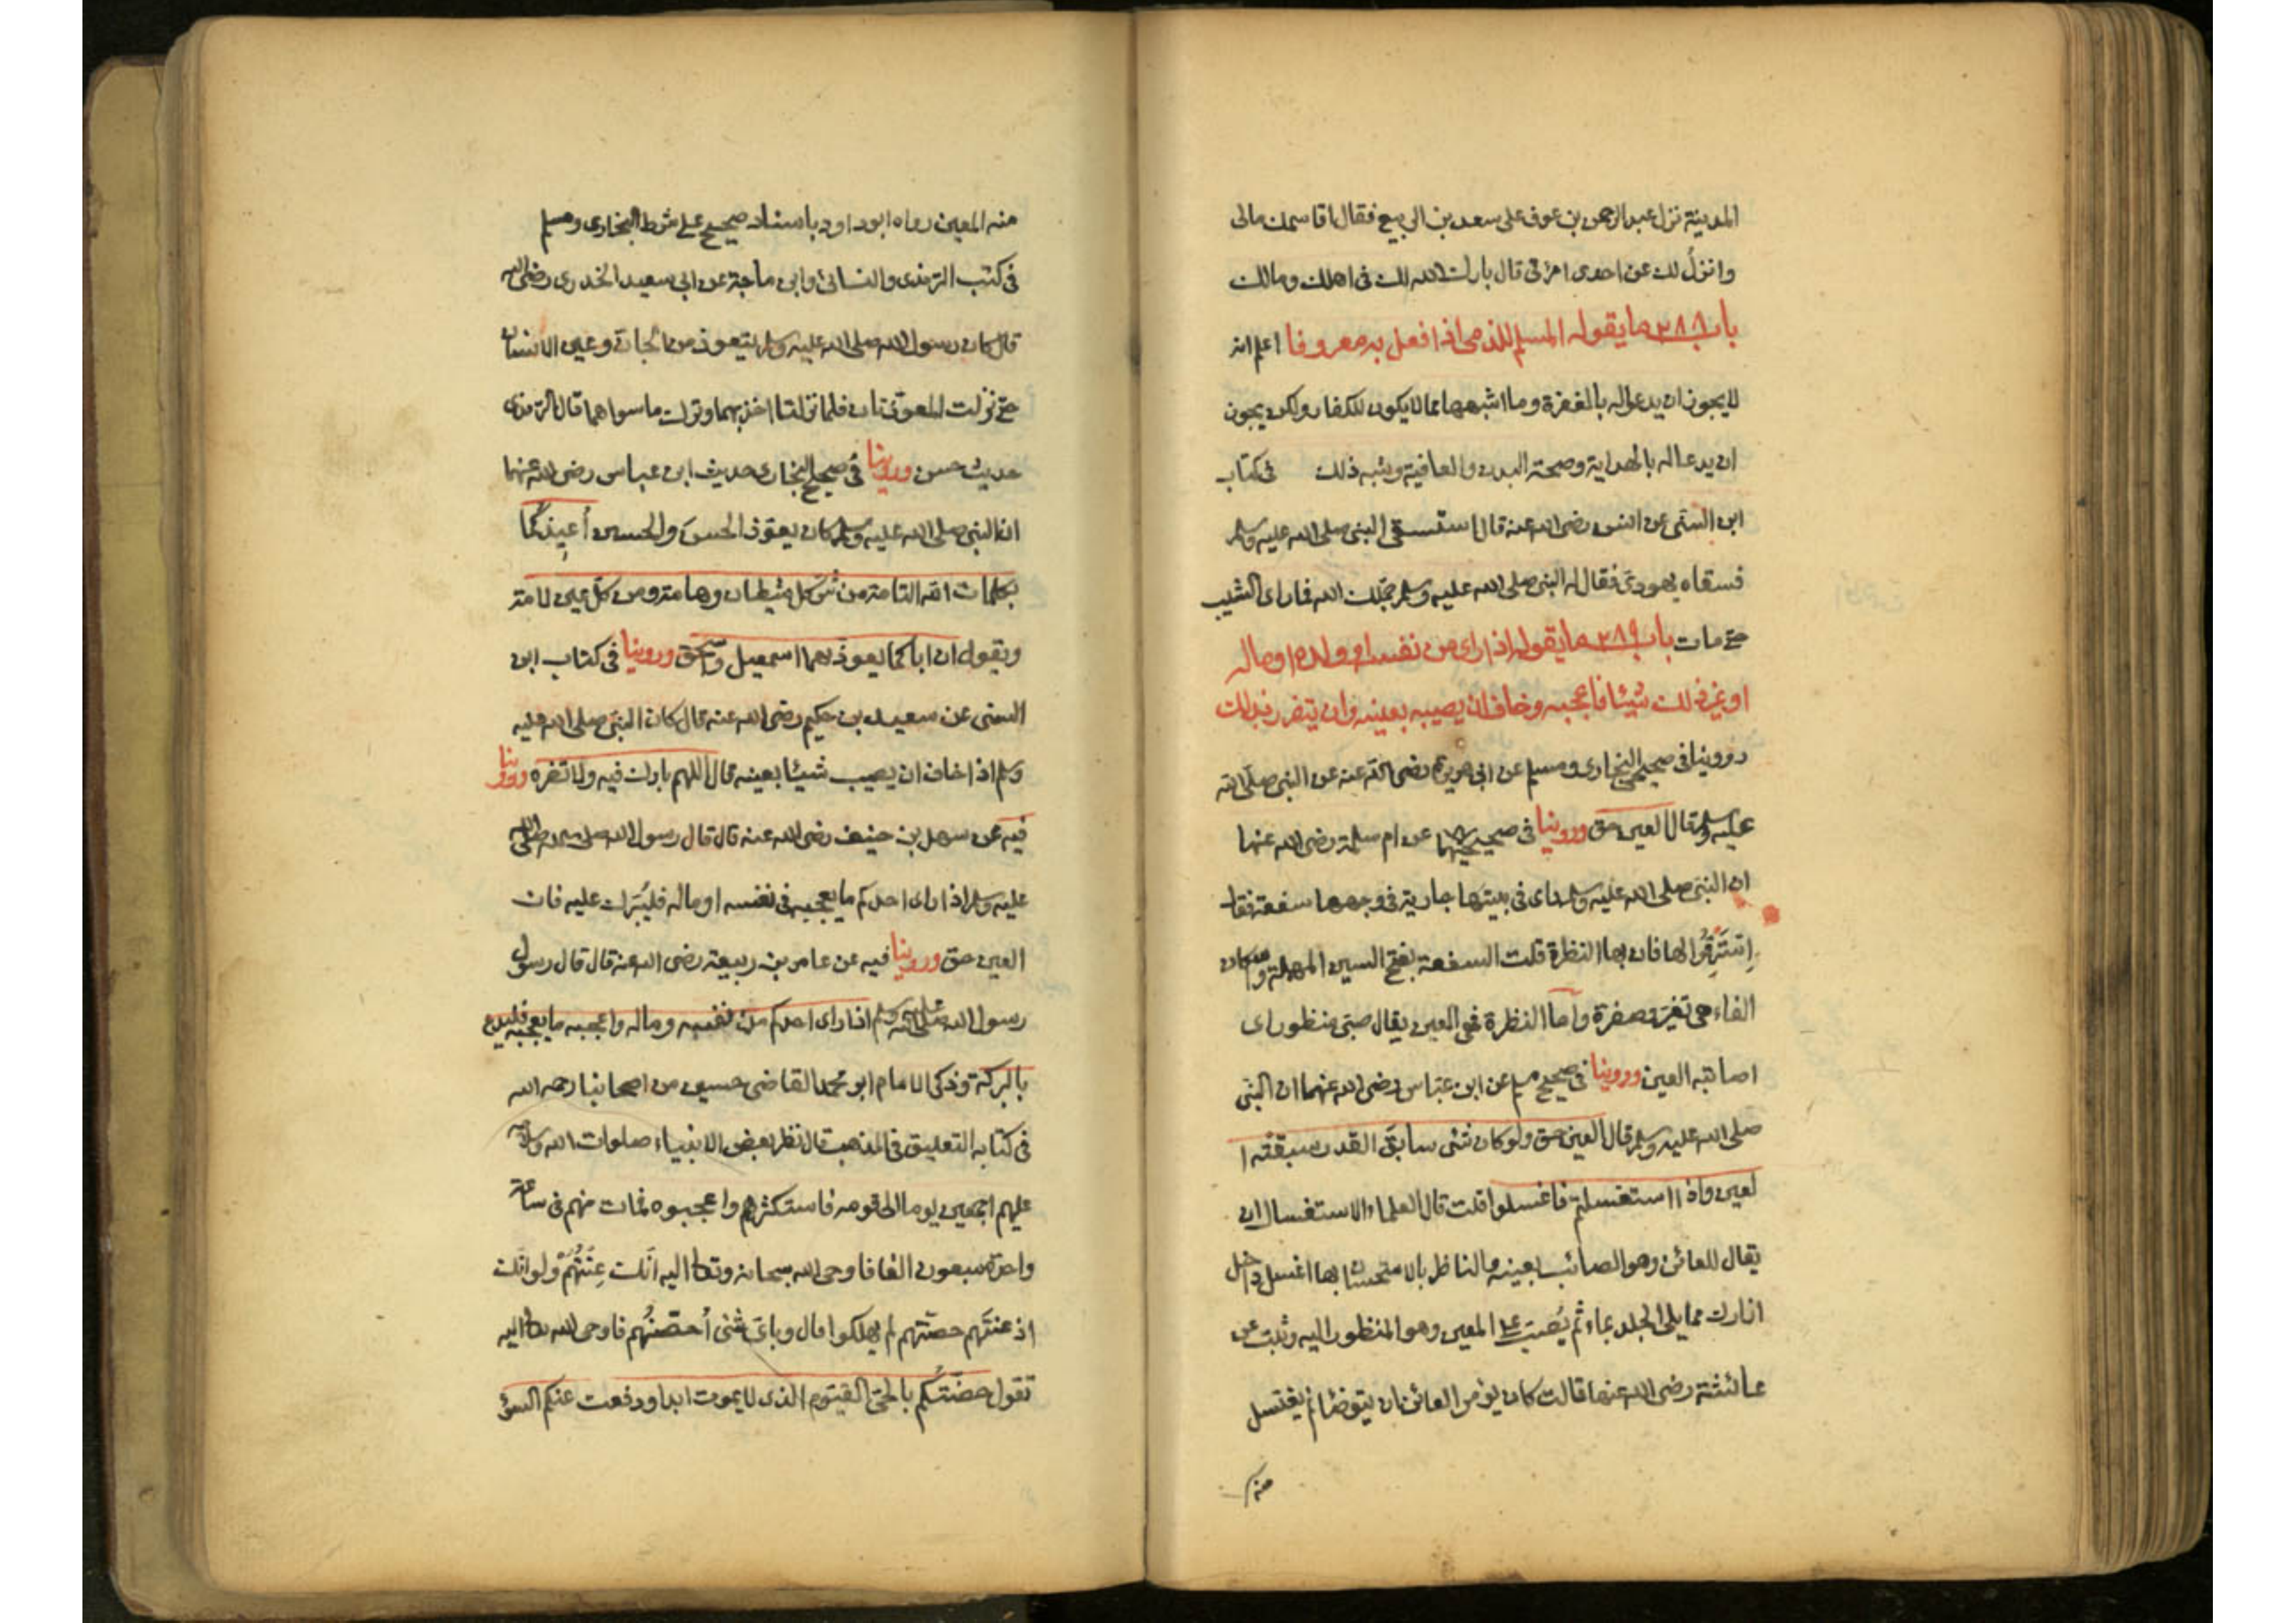 المدينة نزل عبدالرحمن بن عوف على سعد بن الربيع فقال اقاسمك مالى
وانزل لك عن احدى امراتى قال بارك الله لك فى اهلك ومالك
باب ٢٨٨ ما يقوله المسلم للذمى اذا فعل به معروفا اعلم انه
لا يجوز ان يدعوا له بالمغفرة وما اشبهها مما لا يكون للكفار ولكن يجوز
ان يدعا له بالهداية وصحة البدن والعافية وشبه ذلك فى كتاب
ابن السنى عن انس رضى الله عنه قال استسقى النبى صلى الله عليه وسلم
فسقاه يهودى فقال له النبى صلى الله عليه وسلم جملك الله فما راى الشيب
حتى مات باب ٢٨٩ ما يقوله اذا راى من نفسه او ولده او ماله
او غير ذلك شيئا فاعجبه وخاف ان يصيبه بعينه وان يتضرر بذلك
روينا فى صحيح البخارى ومسلم عن ابى هريرة رضى الله عنه عن النبى صلى الله
عليه وسلم قال العين حق وروينا فى صحيحيهما عن ام سلمة رضى الله عنها
ان النبى صلى الله عليه وسلم راى فى بيتها جارية فى وجهها سفعة فقال
استرقوا لها فان بها النظرة قلت السفعة بفتح السين المهملة واسكان
الفاء هى تغير وصفرة واما النظرة فهى العين يقال صبى منظور اى
اصابته العين وروينا فى صحيح مسلم عن ابن عباس رضى الله عنهما ان النبى
صلى الله عليه وسلم قال العين حق ولو كان شئى سابق القدر سبقته ا
لعين واذا استغسلتم فاغسلوا قلت قال العلماء الاستغسال ان
يقال للعائن وهو الصائب بعينه والناظر بالاستحسان بها اغسل داخل
ازارك مما يلى الجلد بماء ثم يصب على المعين وهو المنظور اليه وثبت عن
عائشة رضى الله عنها قالت كان يؤمر العائن ان يتوضا ثم يغتسل
منه
منه المعين رواه ابوداود باسناد صحيح على شرط البخارى ومسلم
فى كتب الترمذى والنسائى وابن ماجة عن ابى سعيد الخدرى رضى الله
قال كان رسول الله صلى الله عليه وسلم يتعوذ من الجان وعين الانسان
حتى نزلت المعوذتان فلما نزلتا اخذ بهما وترك ما سواهما قال الترمذى
حديث حسن وروينا فى صحيح البخارى حديث ابن عباس رضى الله عنهما
ان النبى صلى الله عليه وسلم كان يعوذ الحسن والحسين أعيذكما
بكلمات الله التامة من شر كل شيطان وهامة ومن كل عين لامة
ويقول ان اباكما يعوذ بهما اسمعيل واسحق وروينا فى كتاب ابن
السنى عن سعيد بن حكيم رضى الله عنه قال كان النبى صلى الله عليه
وسلم اذا خاف ان يصيب شيئا بعينه قال اللهم بارك فيه ولا تضره وروينا
فيه عن سهل بن حنيف رضى الله عنه قال قال رسول الله صلى الله
عليه وسلم اذا راى احدكم ما يعجبه فى نفسه او ماله فليبرك عليه فان
العين حق وروينا فيه عن عامر بن ربيعة رضى الله عنه قال قال رسول
رسول الله صلى الله عليه وسلم اذا راى احدكم من نفسه وماله واعجبه ما يعجبه فليدع
بالبركة وذكر الامام ابو محمد القاضى حسين من اصحابنا رحمه الله
فى كتابه التعليق فى المذهب قال نظر بعض الانبياء صلوات الله وسلامه
عليهم اجمعين يوما الى قومه فاستكثرهم واعجبوه فمات منهم فى ساعة
واحدة سبعون الفا فاوحى الله سبحانه وتعالى اليه انك عنتهم ولو انك
اذ عنتهم حصنتهم لم يهلكوا قال وباى شئى أحصنهم فاوحى الله تعالى اليه
تقول حصنتكم بالحى القيوم الذى لا يموت ابدا ودفعت عنكم السؤ